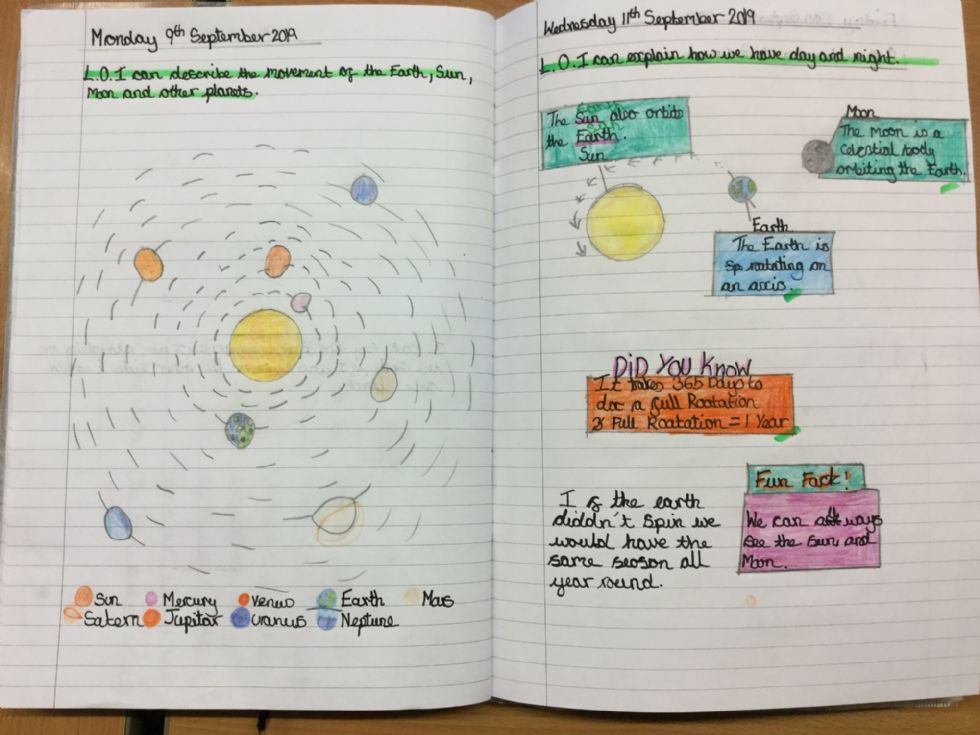 Monday 9th September 2019
L.O. I can describe the movement of the Earth, Sun,
Moon and other planets.
Sun Mercury Venus Earth Mars
Satern Jupitar Uranus Neptune
Wednesday 11th September 2019
L.O. I can explain how we have day and night.
Earth
The Sun also orbits
the Earth.
Sun
Moon
The Moon is a
celestial body
orbiting the Earth.
Earth
The Earth is
sp roatating on
an axis.
DiD YOU KNOW
It takes 365 Days to
doe a full Roatation
Full Roatation = 1 Year
Fun Fact!
We can always
see the sun and
Moon.
If the earth
diddn't spin we
would have the
same season all
year round.